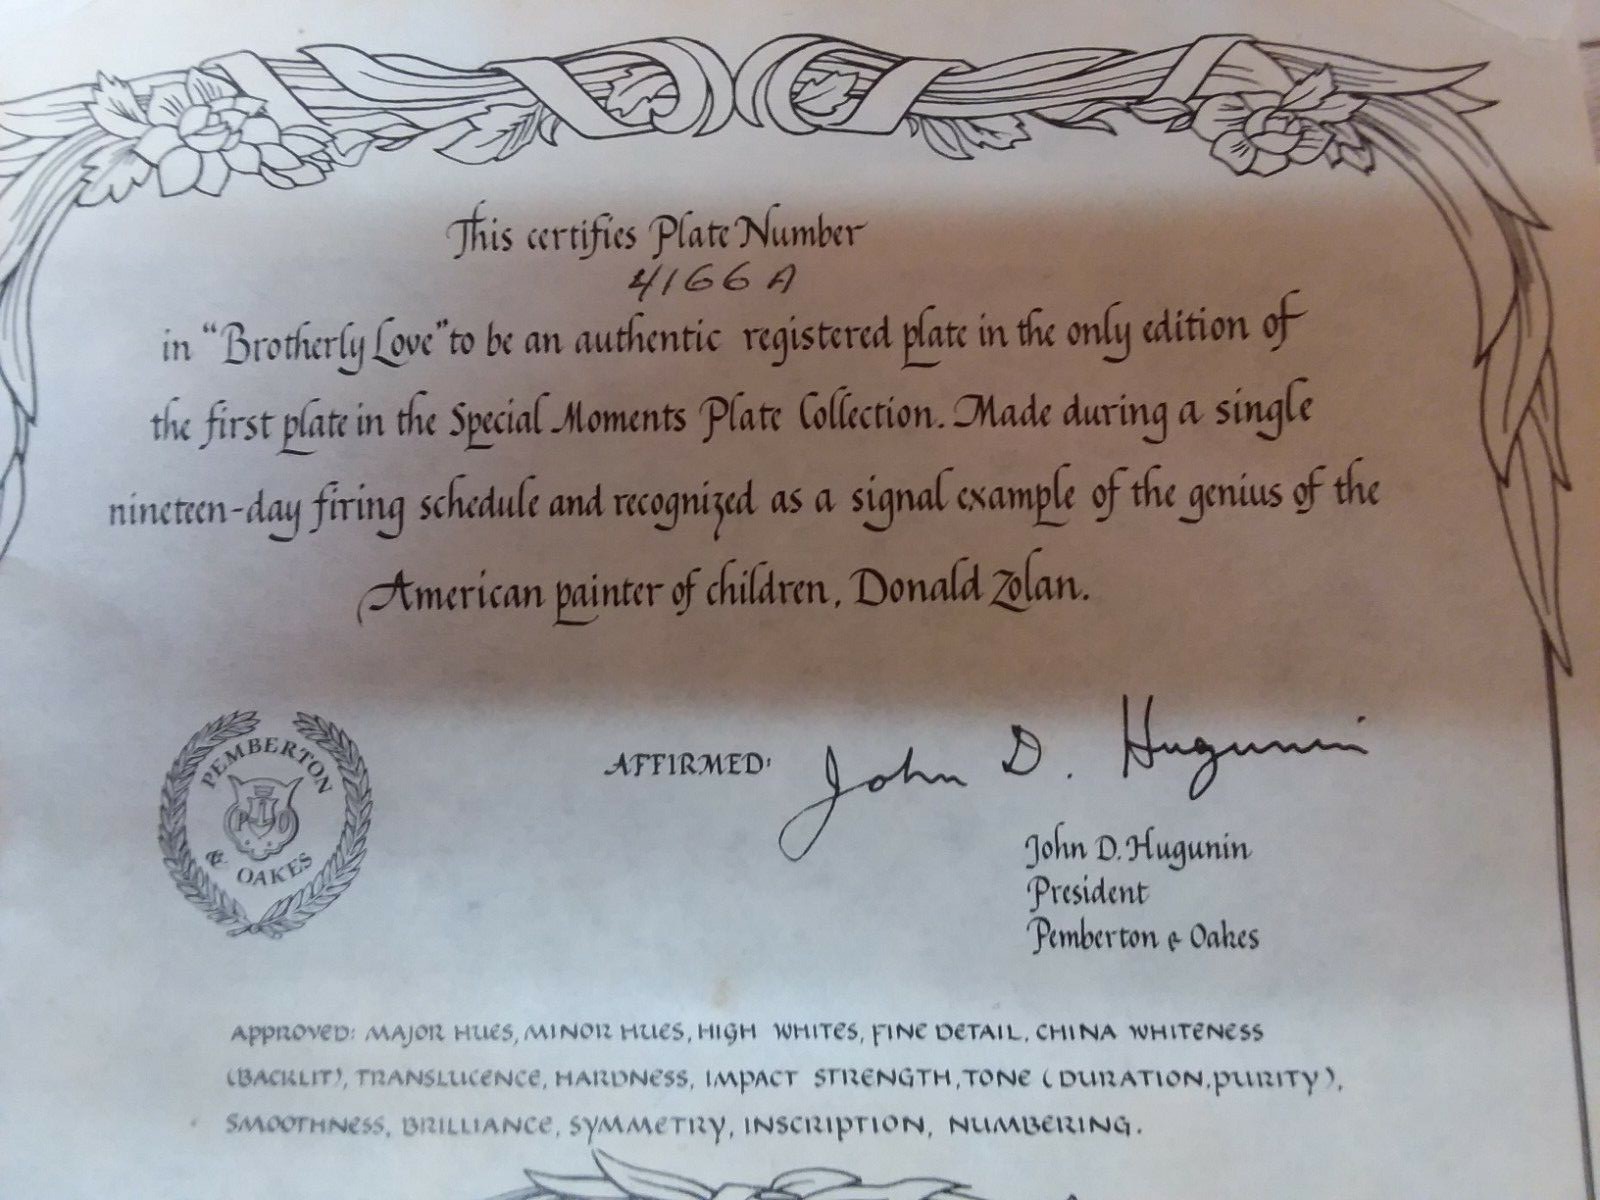 This certifies Plate Number
4166 A
in "Brotherly Love" to be an authentic registered plate in the only edition of
the first plate in the Special Moments Plate Collection. Made during a single
nineteen-day firing schedule and recognized as a signal example of the genius of the
American painter of children, Donald Zolan.
PEMBERTON
P O
& OAKES
AFFIRMED: John D. Hugunin
John D. Hugunin
President
Pemberton & Oakes
APPROVED: MAJOR HUES, MINOR HUES, HIGH WHITES, FINE DETAIL, CHINA WHITENESS
(BACKLIT), TRANSLUCENCE, HARDNESS, IMPACT STRENGTH, TONE (DURATION, PURITY),
SMOOTHNESS, BRILLIANCE, SYMMETRY, INSCRIPTION, NUMBERING.